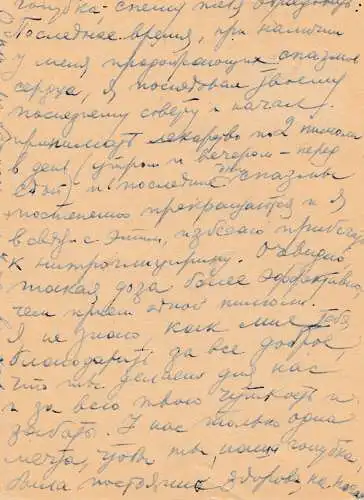 голубка, спешу тебя обрадовать:
Последнее время, при наличии
у меня продолжающихся спазмы
сердца, я последовал твоему
последнему совету и начал
принимать лекарство по 2 пилюли
в день (утром и вечером – перед
едой) и последние дни спазмы
постепенно прекращаются и я
в связи с этим, избегаю прибегать
к нитроглицерину. Очевидно
такая доза более эффективна,
чем прием одной пилюли.
Я не знаю как мне тебя
благодарить за все доброе,
что ты делаешь для нас
и за всю твою чуткость и
заботу. У нас только одна
мечта, чтобы ты, наша голубка,
была постоянно здорова